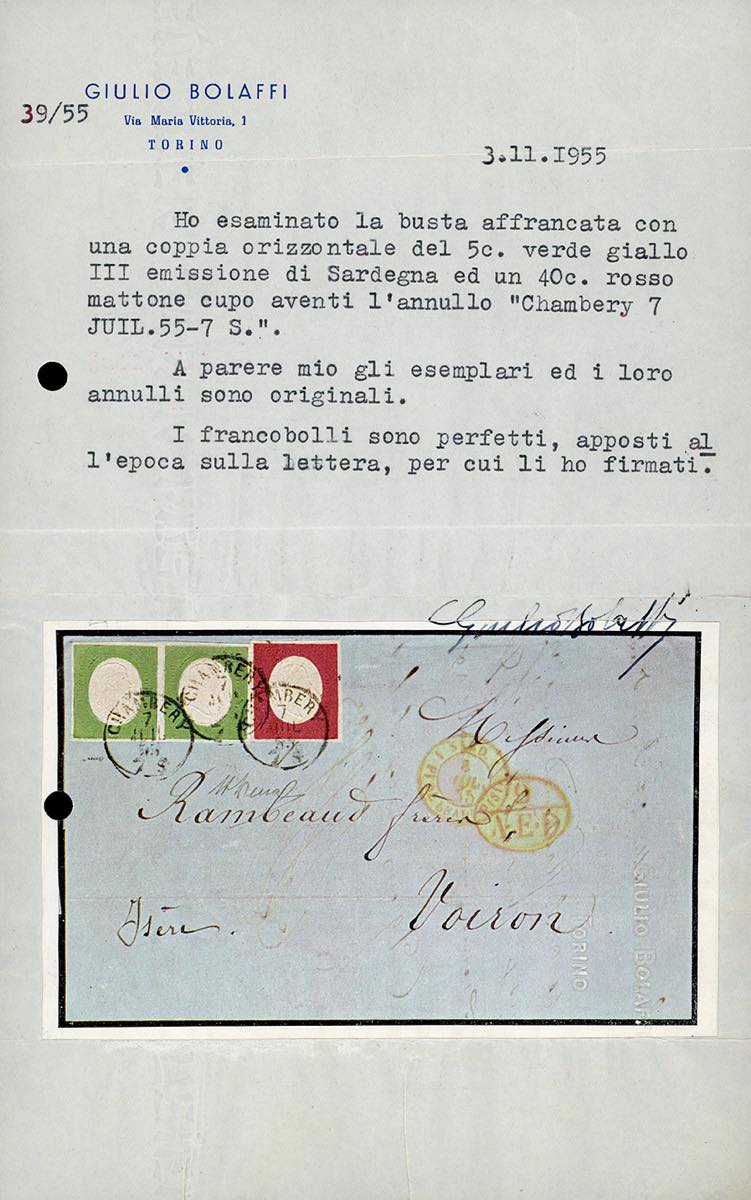 GIULIO BOLAFFI
39/55
Via Maria Vittoria, 1
TORINO
3.11.1955
Ho esaminato la busta affrancata con
una coppia orizzontale del 5c. verde giallo
III emissione di Sardegna ed un 40c. rosso
mattone cupo aventi l'annullo "Chambery 7
JUIL.55-7 S.".
A parere mio gli esemplari ed i loro
annulli sono originali.
I francobolli sono perfetti, apposti al
l'epoca sulla lettera, per cui li ho firmati.
Giulio Bolaffi
CHAMBERY
7
CHAMBERY
CHAMBERY
7
Messieurs
Rambeaud frères,
Isère.
Voiron
GIULIO BOLAFFI
TORINO